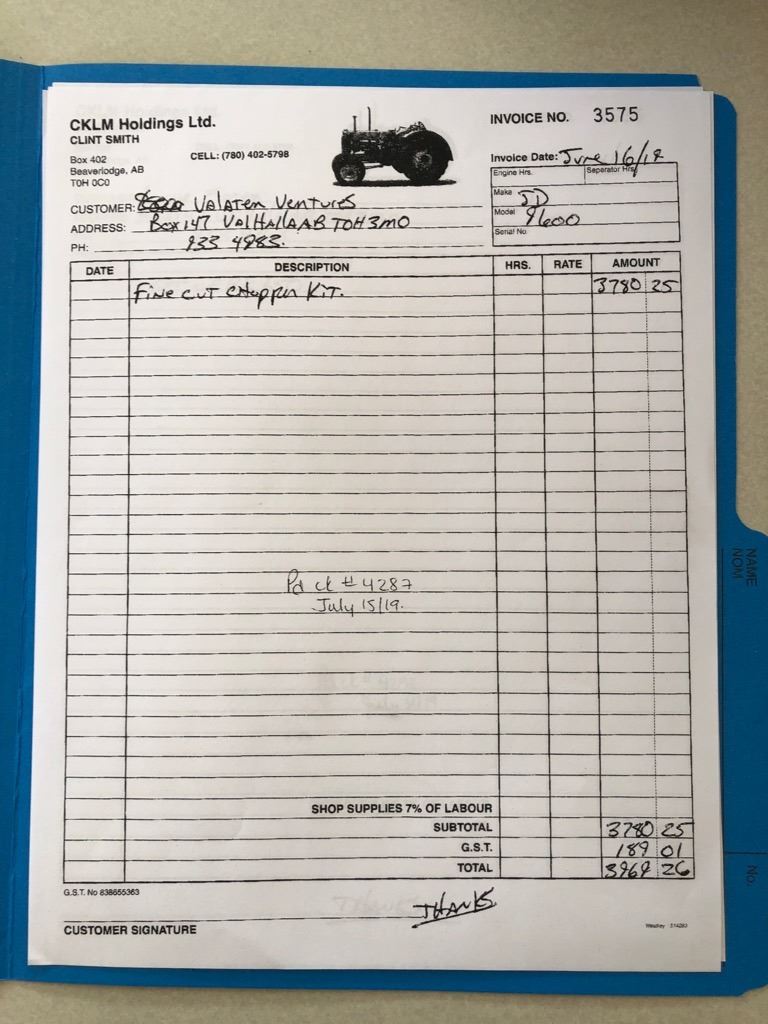 CKLM Holdings Ltd.
CLINT SMITH
Box 402
Beaverlodge, AB
T0H 0C0
CELL: (780) 402-5798
INVOICE NO. 3575
Invoice Date: June 16/19
Engine Hrs. Seperator Hrs
Make JD
Model 9600
Serial No.
CUSTOMER: Valaten Ventures
ADDRESS: Box 147 VALHALLA AB T0H 3M0
PH: 933 4983.
DATE DESCRIPTION HRS. RATE AMOUNT
Fine cut chopper Kit. 3780 25
Pd ck # 4287
July 15/19.
SHOP SUPPLIES 7% OF LABOUR
SUBTOTAL 3780 25
G.S.T. 189 01
TOTAL 3969 26
G.S.T. No 838655363
THANKS
CUSTOMER SIGNATURE
NAME
NOM
No.